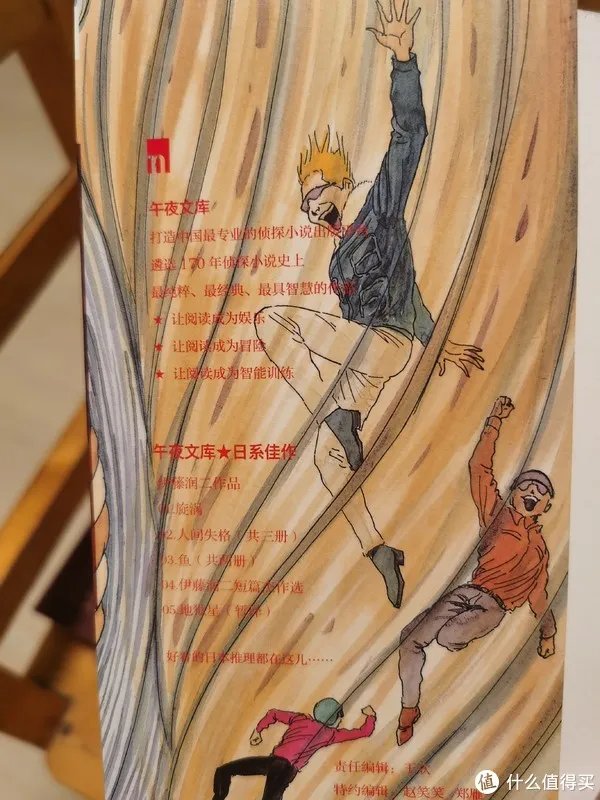 m
午夜文库
打造中国最专业的侦探小说出版
遴选 170 年侦探小说史上
最纯粹、最经典、最具智慧的
★ 让阅读成为娱乐
★ 让阅读成为冒险
★ 让阅读成为智能训练
午夜文库★日系佳作
伊藤润二作品
01.旋涡
02.人间失格（共三册）
03.鱼（共两册）
04.伊藤润二短篇 作选
05.地狱星（暂
好看的日本推理都在这儿……
责任编辑：王
特约编辑：赵笑笑 郑
值 什么值得买